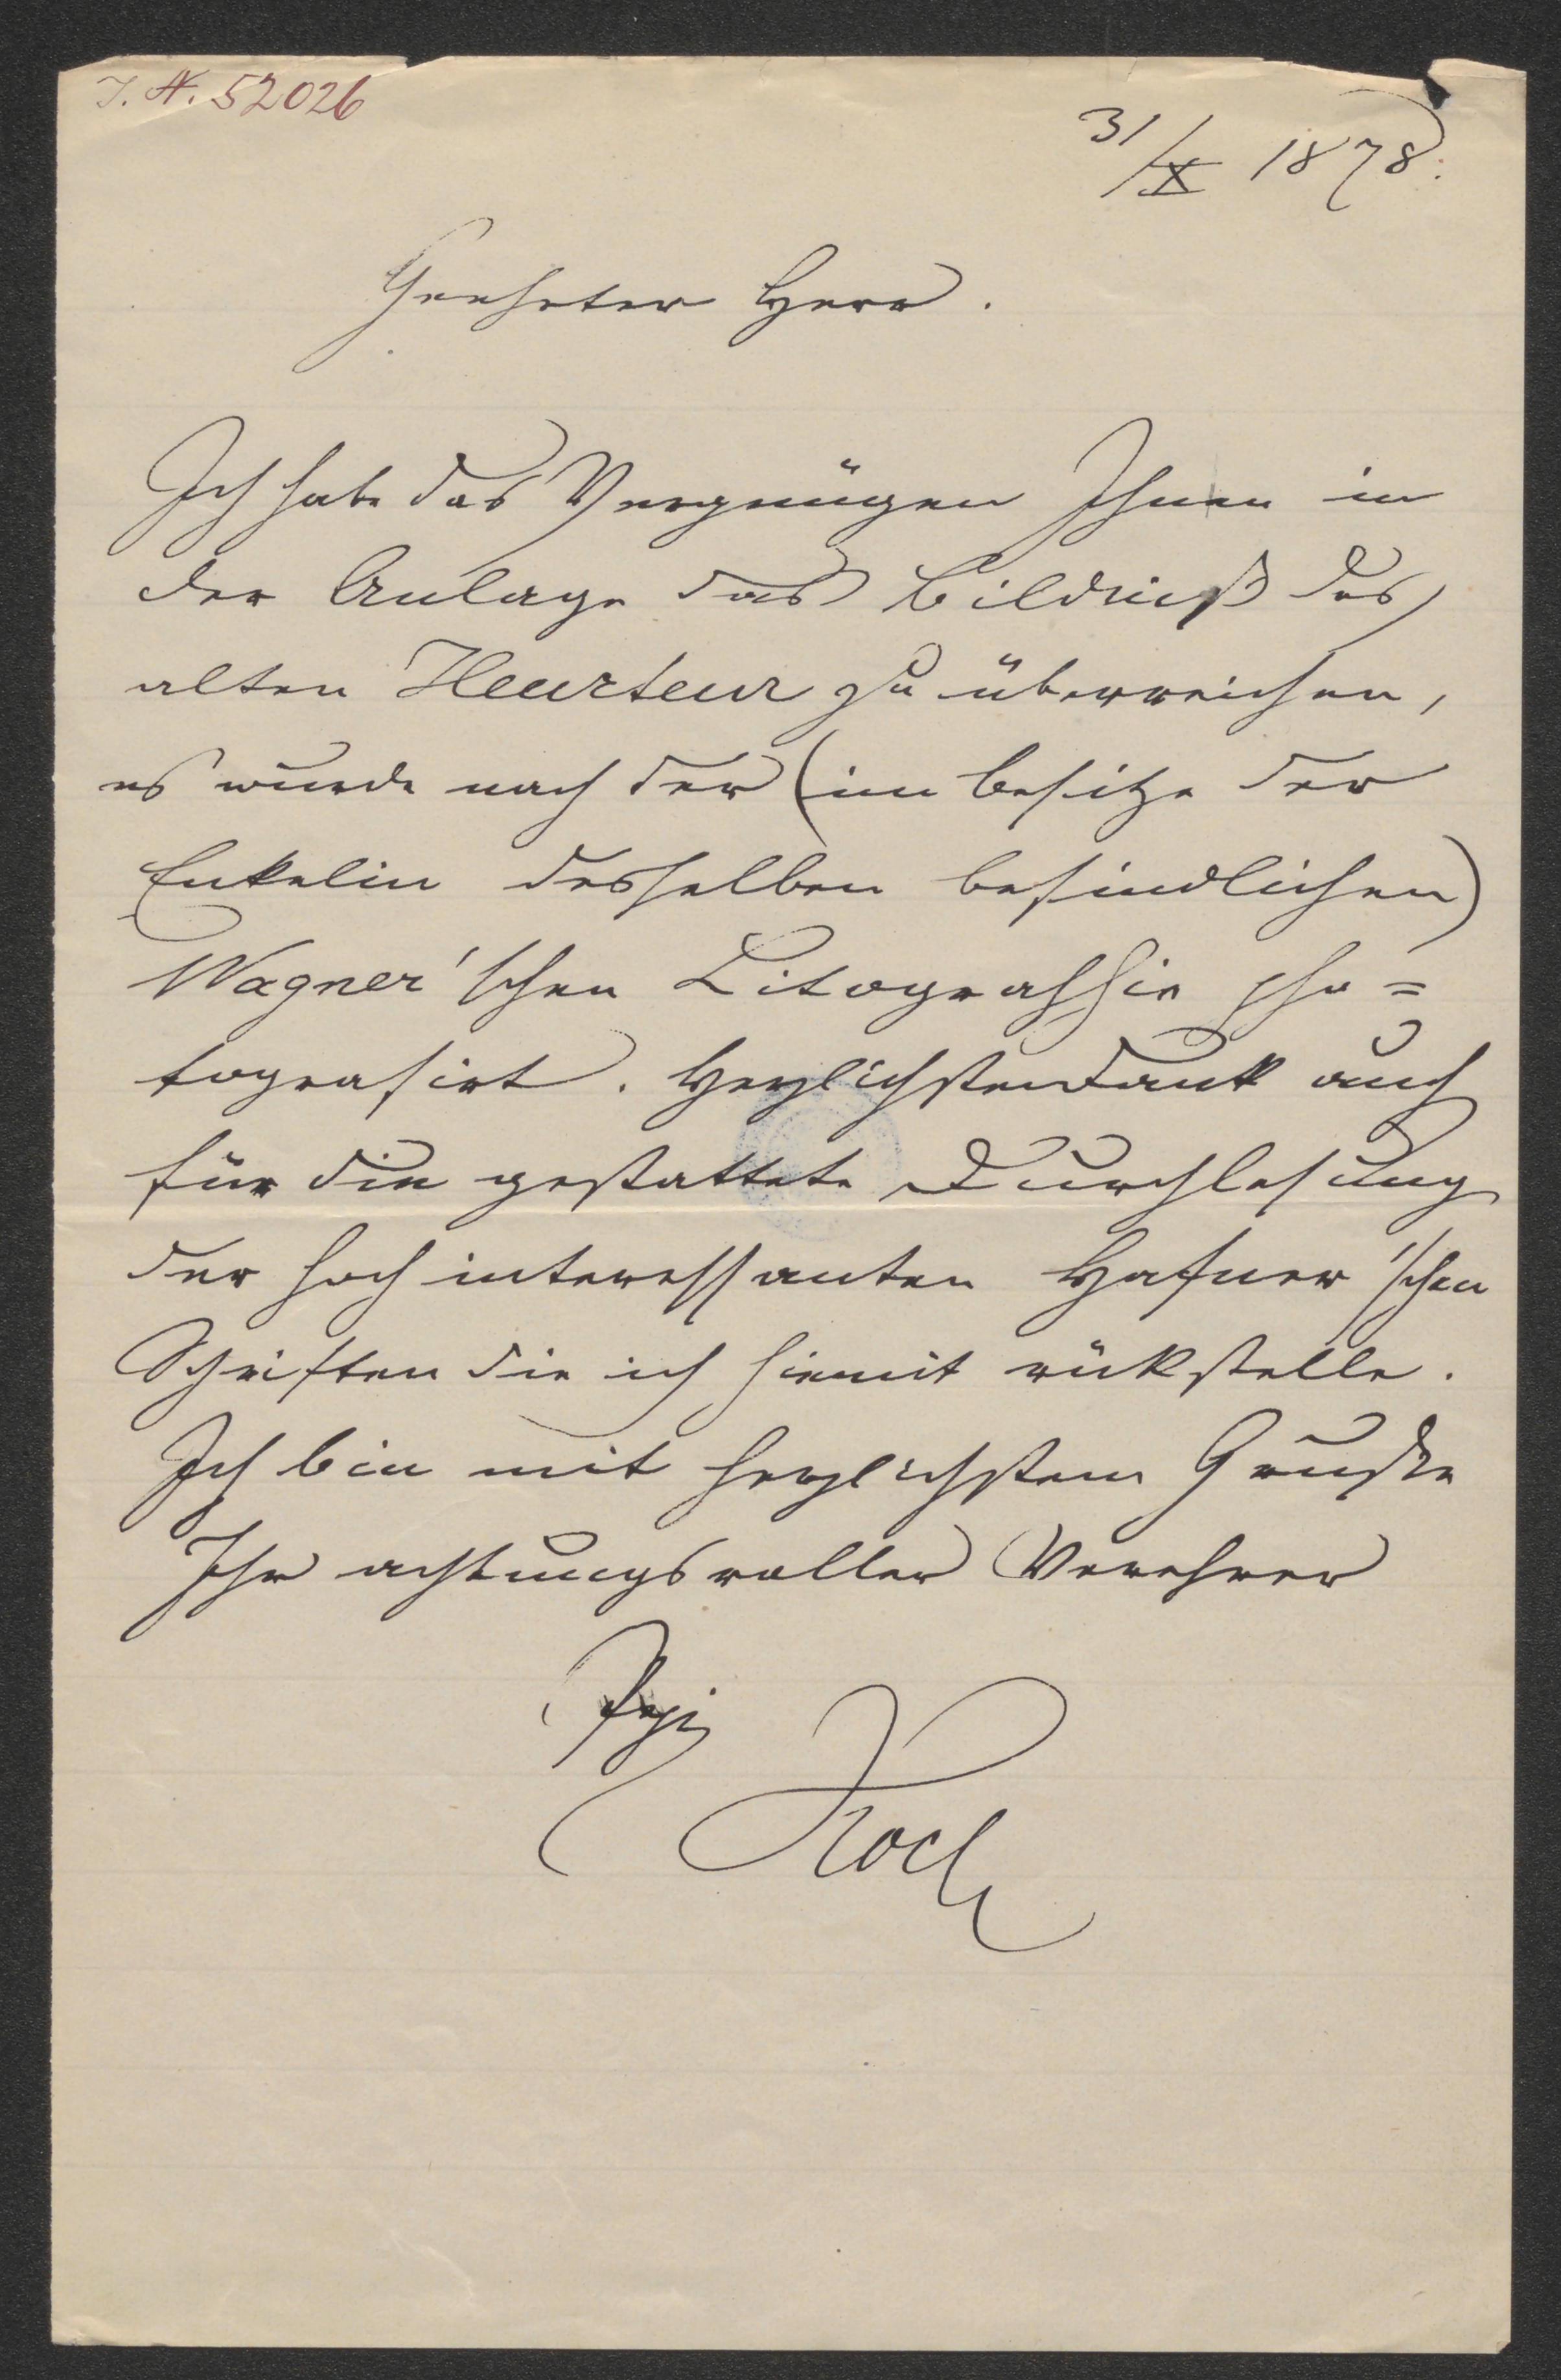 I. N. 52026
31/X 1878.
Geehrter Herr.
Ich habe das Vergnügen Ihnen in
der Anlage das Bildniß des
alten Heurteur zu überreichen,
es wurde nach der (im Besitze der
Enkelin desselben befindlichen)
Wagner'schen Litografie pho=
tografirt. Herzlichsten Dank auch
für die gestattete Durchlesung
der hochinteressanten Hafner'schen
Schriften die ich hiemit rückstelle.
Ich bin mit herzlichstem Gruße
Ihr achtungsvoller Verehrer
Koch